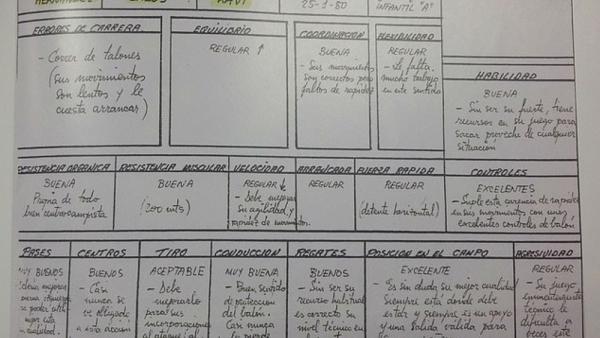 HERNANDEZ
XAVI
25-1-80
INFANTIL "A"
ERRORES DE CARRERA
- Correr de talones
(sus movimientos
son lentos y le
cuesta arrancar)
EQUILIBRIO
REGULAR ↑
COORDINACION
BUENA
- Sus movimientos
son correctos pero
faltos de rapidez
FLEXIBILIDAD
REGULAR
- Le falta
mucho trabajo
en este sentido
HABILIDAD
BUENA
- Sin ser su fuerte, tiene
recursos en su juego para
sacar provecho de cualquier
situación
RESISTENCIA ORGANICA
BUENA
Propia de todo
buen centrocampista
RESISTENCIA MUSCULAR
BUENA
(200 mts)
VELOCIDAD
REGULAR ↓
- Debe mejorar
su agilidad y
rapidez de movimientos.
ARRANCADA
REGULAR
FUERZA RAPIDA
REGULAR
(detente horizontal)
CONTROLES
EXCELENTES
- Suple esta carencia de rapidez
en sus movimientos con unos
excelentes controles de balón
PASES
MUY BUENOS
mejorar
esta
cualidad.
CENTROS
BUENOS
- Casi
nunca se
ve obligado
a esta acción
TIRO
ACEPTABLE
- Debe
mejorarlo
para sus
incorporaciones
al ataque
CONDUCCION
MUY BUENA
- Buen sentido
de protección
del balón.
Casi nunca
lo pierde
REGATES
BUENOS
- Sin ser su
recurso habitual
es correcto su
nivel técnico en
POSICION EN EL CAMPO
EXCELENTE
- Es sin duda su mejor cualidad
Siempre está donde debe
estar y siempre es un apoyo
y una salida válida para
AGRESIVIDAD
REGULAR
- Su juego
eminentemente
técnico le
dificulta a
veces este